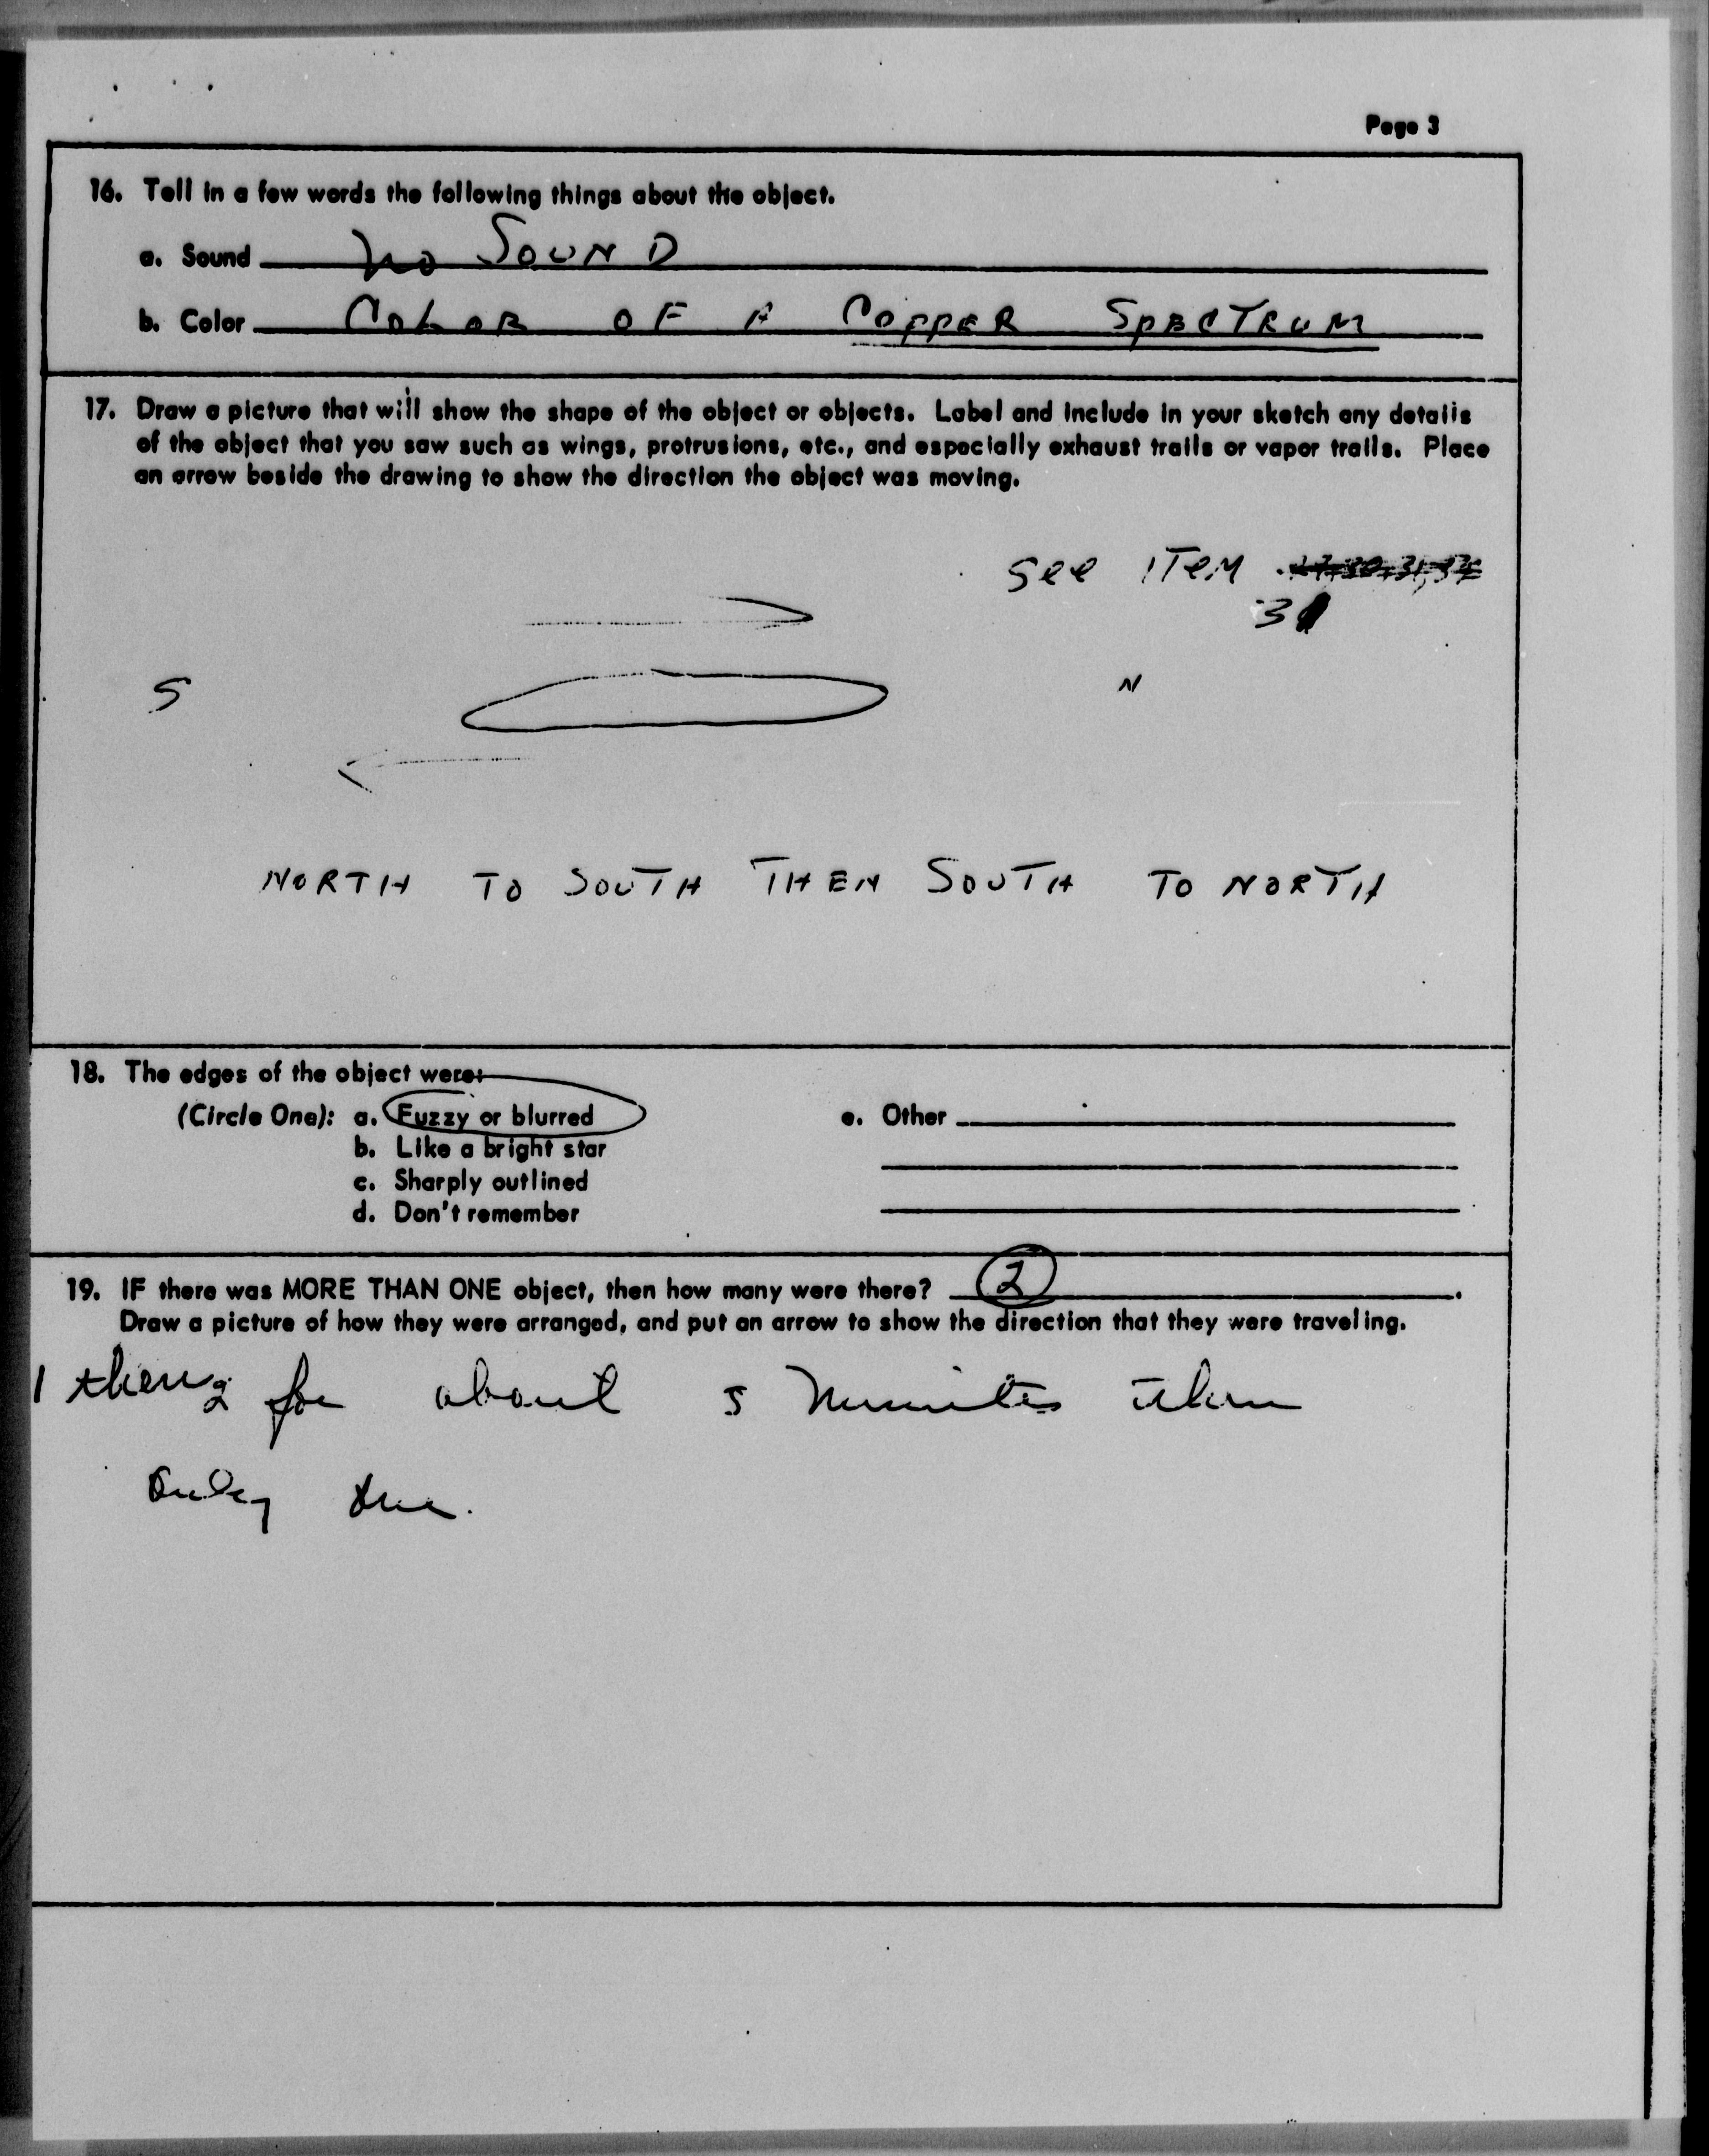 Page 3
16. Tell in a few words the following things about the object.
a. Sound no SOUND
b. Color COLOR OF A COPPER SPECTRUM
17. Draw a picture that will show the shape of the object or objects. Label and include in your sketch any details
of the object that you saw such as wings, protrusions, etc., and especially exhaust trails or vapor trails. Place
an arrow beside the drawing to show the direction the object was moving.
See ITEM
31
S N
NORTH TO SOUTH THEN SOUTH TO NORTH
18. The edges of the object were:
(Circle One): a. Fuzzy or blurred e. Other
b. Like a bright star
c. Sharply outlined
d. Don't remember
19. IF there was MORE THAN ONE object, then how many were there? 2.
Draw a picture of how they were arranged, and put an arrow to show the direction that they were traveling.
1 then 2 for about 5 minutes then
only one.